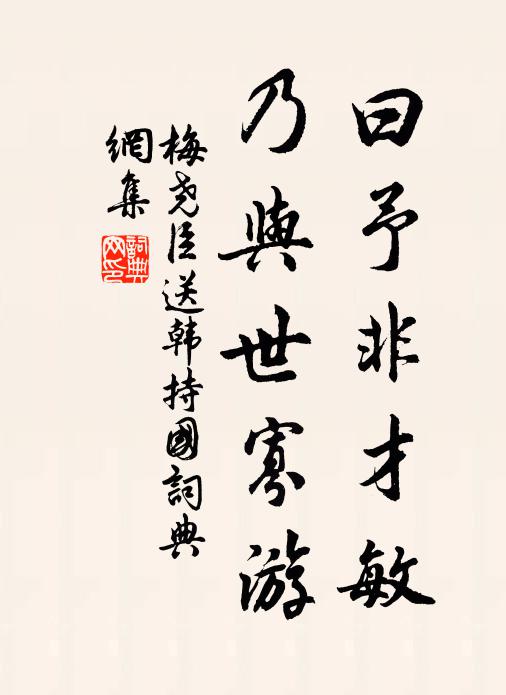 曰予非才敏
乃與世寡游
梅尧臣送韩持國詞典
網集
詞典
网印